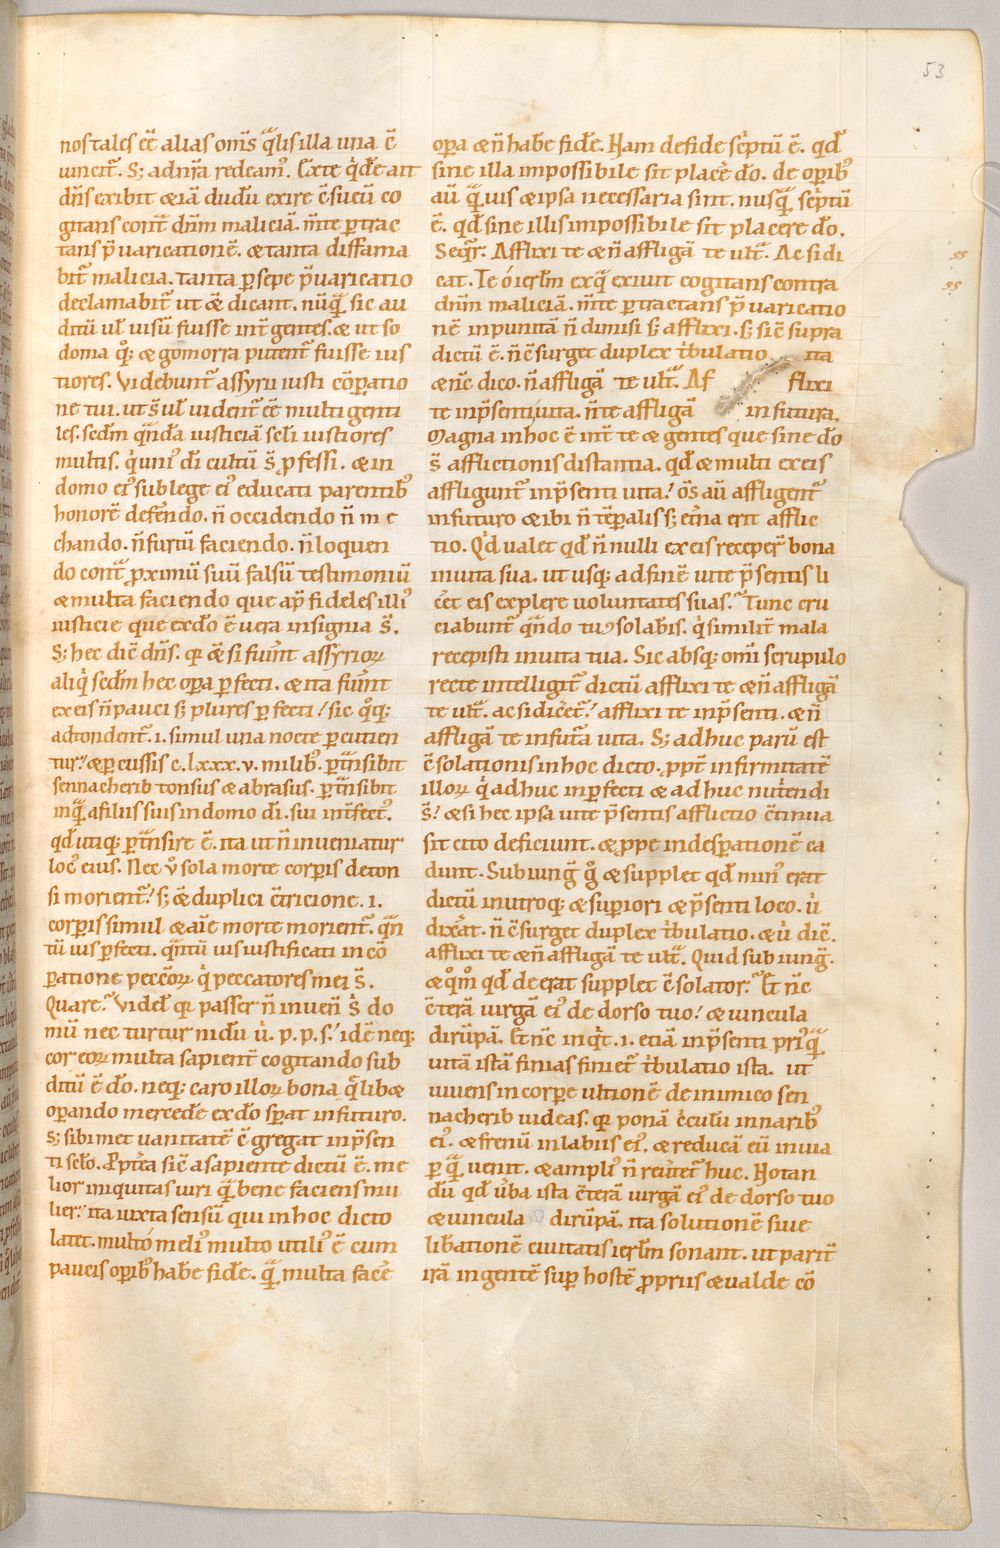 53
nos tales eē alias om̄s q̄lis illa una ē
uincit̄. S; ad nr̄a redeam᾽. Ex te q̇dē ait
dn̄s exibit ⁊ iā dudū exire ɔ̄sueū co
gitans cont̄ dnm̄ maliciā. m̄te ꝑtrac
tans p̄uaricationē. ⁊ tanta diffama
bit̄ malicia. tanta ꝑ sepe p̄uaricatio
declamabit̄ ut ⁊ dicant. nūq̄ sic au
ditū uł uisū fuisse int̄ gentes. ⁊ ut so
doma q᷒; ⁊ gomorra putent̄ fuisse ius
tiores. Videbunt̄ assyrii iusti cōꝑatio
ne tui. ut s̄ uł uident̄ eē multi genti
les. sedm̄ q̄nda iusticiā scłi iustiores
multis. q̇ uni᾽ di cultū s̄ ꝓfessi. ⁊ in
domo ei᾽ sub lege ei᾽ educati parentib᾽
honorē deferēdo. n̄ occidendo n̄ me
chando. n̄ furtū faciendo. n̄ loquen
do cont̄ ꝓximū suū falsū testimoniū
⁊ multa faciendo que ap̄ fideles illi᾽
iusticie que ex dō ē uera insignia s̄.
S; hec dic̄ dn̄s. qꝛ ⁊ si fuīnt assyrioꝝ
aliq̇ sedm̄ hec oꝑa ꝑfecti. ⁊ ita fuīnt
ex eis n̄ pauci s; plures ꝑfecti / sic q᷒q;
adtondent̄. i. simul una nocte ꝑcutien
tur / ⁊ ꝑcussis c. lxxx. v. milib᾽. ꝑt̄nsibit
sennacherib tonsus ⁊ abrasus. ꝑt̄nsibit
inq̄ a filiis suis in domo di. sui int̄fect᾽.
qd̄ utiq; ꝑt̄nsire ē. ita ut n̄ inueniatur
loc᾽ eius. Nec v̇ sola morte corꝑis deton
si morient̄ / s; ⁊ duplici ɔ̄tricione. i.
corꝑis simul ⁊ aīe morte morient̄. q̄n
tū uis ꝑfecti. q̄ntū uis iustificati in cō
ꝑatione peccōꝝ q̇ peccatores mei s̄.
Quare. Videł qꝛ passer n̄ inuen̄ s̄ do
mū nec turtur nidū u̇. p. p. s. / idē neq;
cor eoꝝ multa sapient̄ cogitando sub
ditū ē dō. neq; caro illoꝝ bona q̄libæ
oꝑando mercedē ex dō sꝑat in futuro.
S; sibimet uanitatē ɔ̄gregat in p̄sen
ti scło. Ꝓpt̄ea sic̄ a sapiente dictū ē. me
lior iniquitas uiri q̄ bene faciens mu
lier / ita iuxta sensū qui in hoc dicto
latet. multó meli᾽ multo utili᾽ ē cum
paucis oꝑib᾽ habe fidē. q̄ multa facē
oꝑa ⁊ n̄ habe fidē. Nam de fide sc̄ptū ē. qd̄
sine illa impossibile sit placē dō. de oꝑib᾽
aū q̄uis ⁊ ipsa necessaria sint. nusq̄ sc̄ptū
ē. qd̄ sine illis impossibile sit placere dō.
Seqr̄. Afflixi te ⁊ n̄ affligā te ult̄. Ac si di
cat. Te ó ierłm ex q̄ exiuit cogitans contra
dnm̄ maliciā. m̄te ꝑtractans p̄uaricatio
nē inpunitā n̄ dimisi s; afflixi. s; sic̄ supra
dictū ē. n̄ ɔ̄surget duplex t̄bulatio ita
⁊ nc̄ dico. n̄ affligā te ult̄. Af flixi
te in p̄senti uita. n̄ te affligā in futura.
Magna in hoc ē int̄ te ⁊ gentes que sine dō
s̄ afflictionis distantia. qd̄ ⁊ multi ex eis
affligunt̄ in p̄senti uita / os̄ aū affligent̄
in futuro ⁊ ibi n̄ tēꝑalis s; et̄na erit afflic
tio. Qd̄ ualet qd̄ n̄nulli ex eis receꝑ bona
in uita sua. ut usq; ad finē uite p̄sentis li
c̄et eis explere uoluntates suas. Tunc cru
ciabunt̄ q̄ndo tu ɔsolabis. q̇ similit̄ mala
recepisti in uita tua. Sic absq; omī scrupulo
recte intelligit̄ dictū afflixi te ⁊ n̄ affligā
te ult̄. ac si dic̄et / afflixi te in p̄senti. ⁊ n̄
affligā te in fut̄a uita. S; adhuc parū est
ɔ̄solationis in hoc dicto. ꝓpt̄ infirmitatē
illoꝝ q̇ adhuc inꝑfecti ⁊ adhuc nut̄endi
s̄ / ⁊ si hec ipsa uite p̄sentis afflictio ɔ̄tinua
sit cito deficiunt. ⁊ ꝓpe in desꝑationē ca
dunt. Subiung̃ g᷒ ⁊ supplet qd̄ min᾽ erat
dictū in utroq; ⁊ supiori ⁊ p̄senti loco. u̇
dix̄at. n̄ ɔ̄surget duplex t̄bulatio. ⁊ u̇ dic̄.
afflixi te ⁊ n̄ affligā te ult̄. Quid subiung̃.
⁊ q᷒m᷒ qd̄ deerat supplet ɔ̄solator: Et nc̄
ɔ̄terā uirgā ei᾽ de dorso tuo / ⁊ uincula
dirūpā. Et nc̄ inqt̄. i. etiā in p̄senti pri᾽q̄
uitā istā finias finiet̄ t̄bulatio ista. ut
uiuens in corꝑe ultionē de inimico sen
nacherib uideas. qꝛ ponā ċculū in narib᾽
ei᾽. ⁊ frenū in labiis ei᾽. ⁊ reducā eū in uia
ꝑ q̄ uenit. ⁊ ampli᾽ n̄ reūtet̄ huc. Notan
dū qd̄ ūba ista ɔ̄terā uirgā ei᾽ de dorso tuo
⁊ uincula dirūpā. ita solutionē siue
libationē ciuitatis ierłm sonant. ut parit̄
irā in gentē suꝑ hostē ꝓprius ⁊ ualde cō